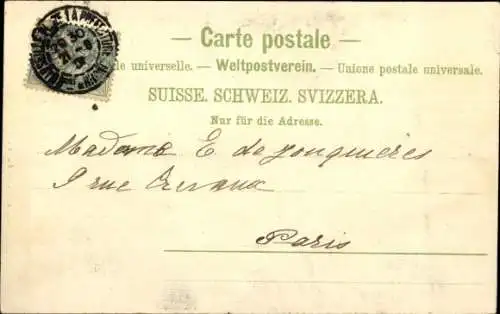 — Carte postale —
le universelle. — Weltpostverein. — Unione postale universale.
SUISSE. SCHWEIZ. SVIZZERA.
Nur für die Adresse.
Madame E. de Jonquières
9 rue
Paris